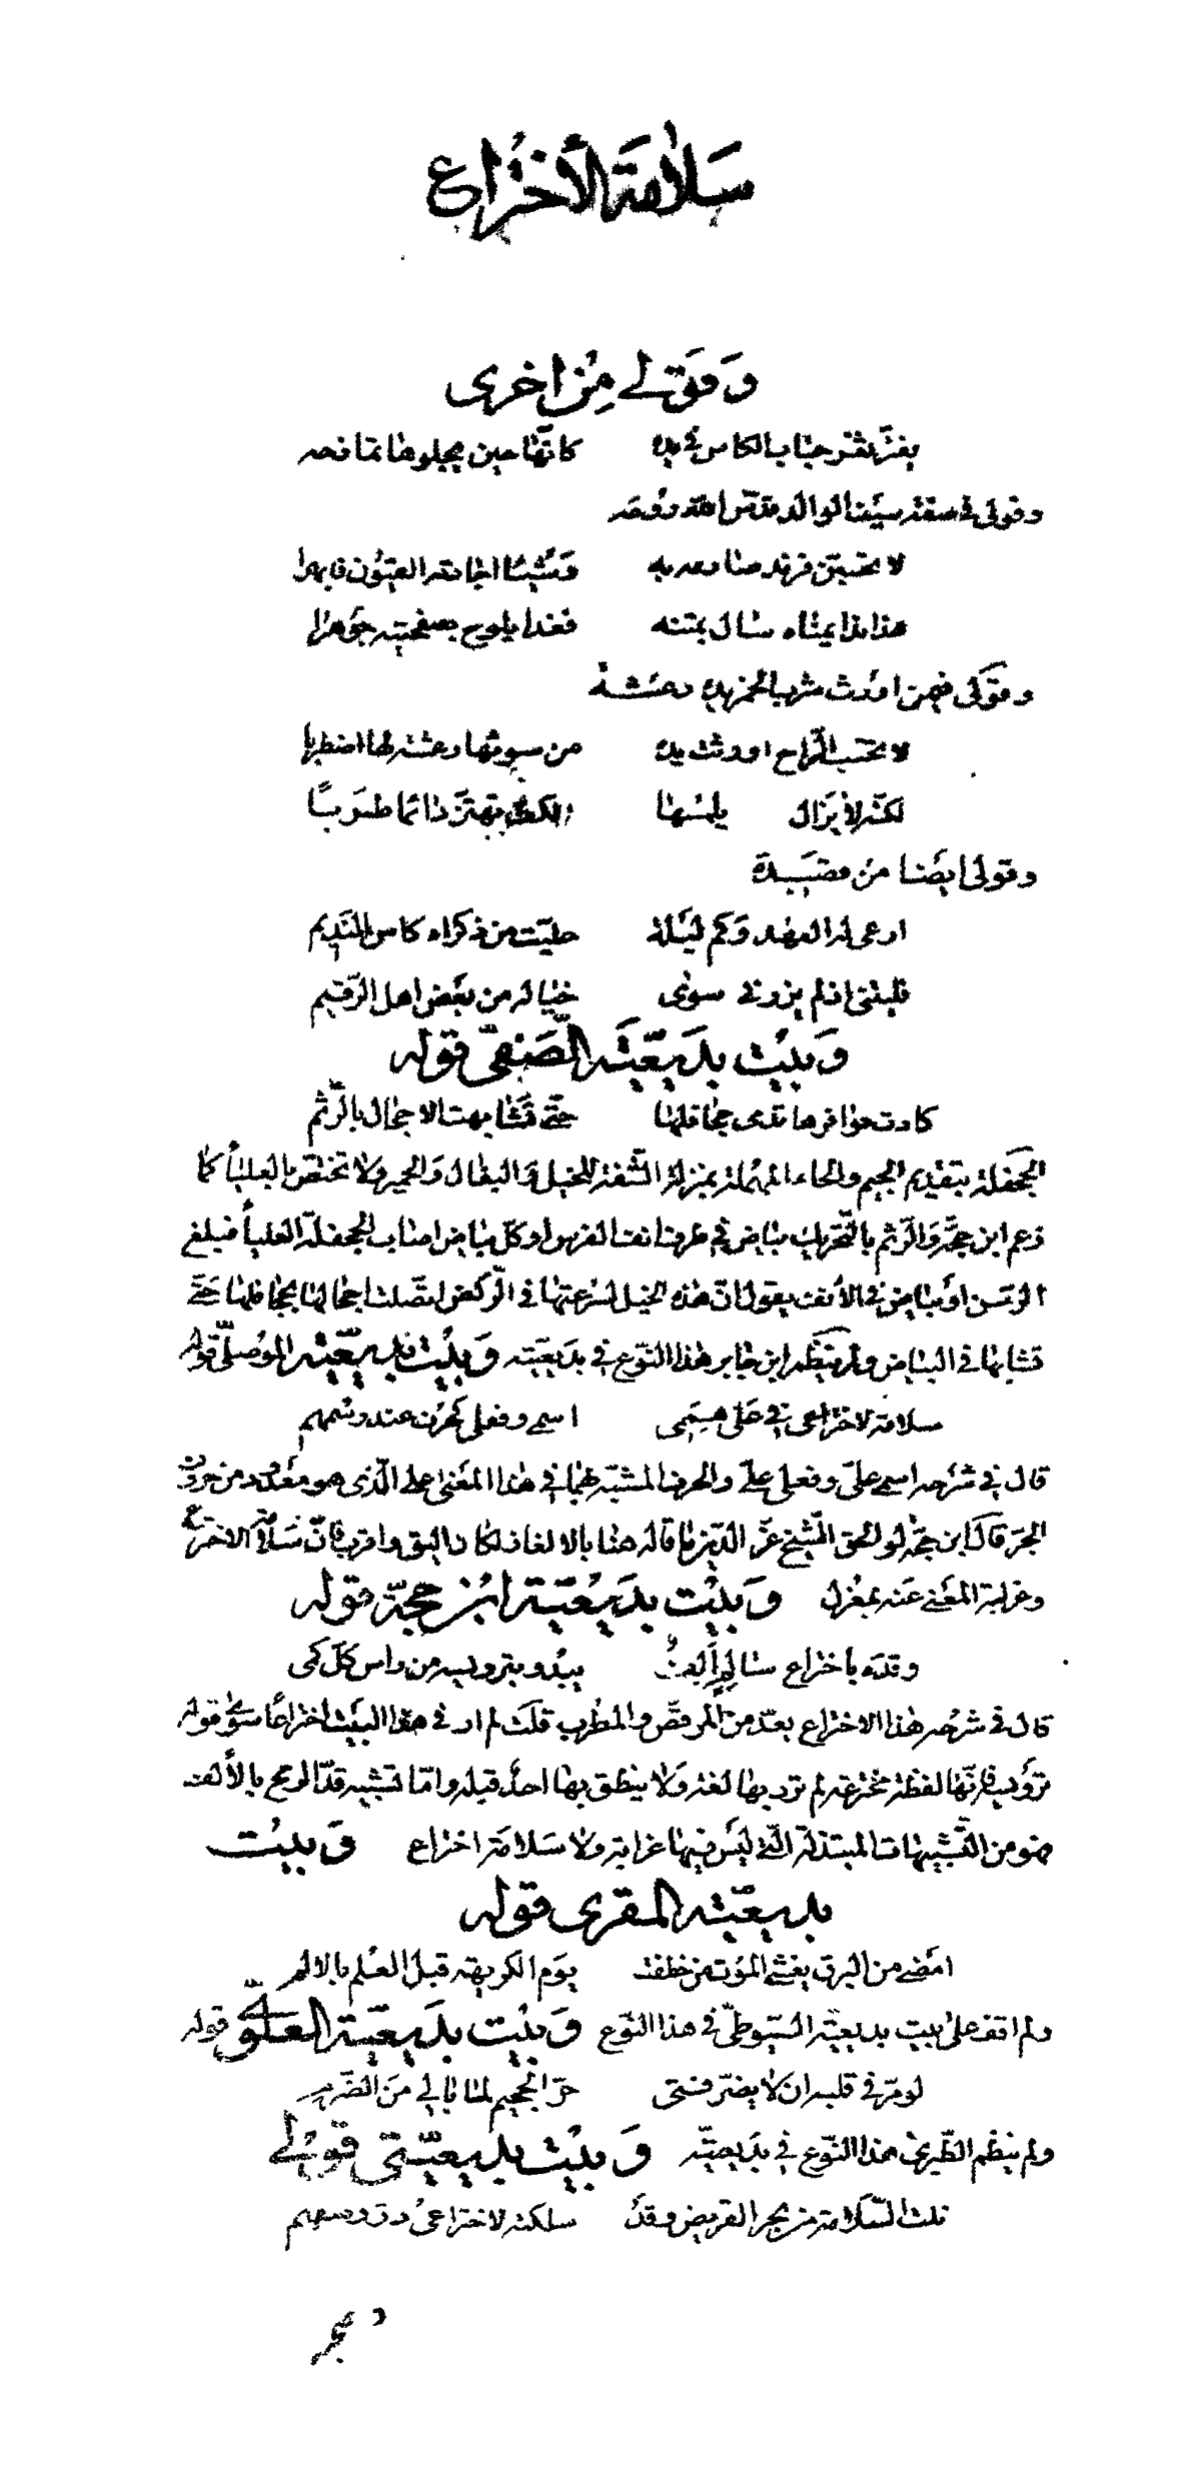 سلامة الأختراع
وقولي من اخرى
يفتر ثغر حباب الكاس في يده كانها حين يجلوها تمازحه
وقولي في صفة سيف الوالد قدس الله روحه
لا تحسبن فرند صارمه به وشيا اجادته العيون فابهرا
هذا ندا يمناه سال بمتنه فغدا يلوح بصفحتيه جوهرا
وقولي فيمن اورث شرب الخمر يده رعشة
لا تحسب الراح اورثت يده من سوءها رعشة لها اضطربا
لكنه لا يزال يلمسها الكف تهتز دائما طربا
وقولي ايضا من قصيدة
ارعى له العهد وكم ليلة حليت من ذكراه كاس النديم
فليتني اذ لم يزرني سوى خياله من بعض اهل الرقيم
وبيت بديعية الصفي قوله
كادت حوافرها تدمي جحافلها حتى تشابهت الاحجال بالرثم
الجحفلة بتقديم الجيم والحاء المهملة بمنزلة الشفة للخيل والبغال والحمير ولا تختص بالعليا كما
زعم ابن حجة والرثم بالتحريك بياض في طرف انف الفرس او كل بياض اصاب الجحفلة العليا فبلغ
المرسن او بياض في الأنف يقول ان هذه الخيل لسرعتها في الركض اتصلت احجالها بجحافلها حتى
تشابها في البياض ولم ينظم ابن جابر هذا النوع في بديعيته وبيت بديعية الموصلي قوله
سلامة لاختراعي في على هممي اسمي وفعلي كحرف عند رسمهم
قال في شرحه اسمي علي وفعلي علا والحرف المشبه بهما في هذا المعنى على الذي هو معدود من حروف
الجر قال ابن حجة لو الحق الشيخ عز الدين ما قاله هنا بالالغاز لكان اليق واقرب فان سلامة الاختراع
وغرابة المعنى عنه بمعزل وبيت بديعية ابن حجة قوله
وقده باختراع سالم الف يبدو بترويسه من راس كل كمي
قال في شرحه هذا الاختراع يعد من المرقص والمطرب قلت لم ار في هذا البيت اختراعا سوى قوله
ترويسه فانها لفظة مخترعة لم ترد بها لغة ولا ينطق بها احد قبله واما تشبيه قد الرمح بالألف
فهو من التشبيهات المبتذلة التي ليس فيها غرابة ولا سلامة اختراع وبيت
بديعية المقري قوله
امضى من البرق يغشى الموت من خطفت يوم الكريهة قبل العلم بالالم
ولم اقف على بيت بديعية السيوطي في هذا النوع وبيت بديعية العلوي قوله
لو مر في قلبه ان لا يضر فتى حر الجحيم لما بالي من الضرم
ولم ينظم الطبري هذا النوع في بديعيته وبيت بديعيتي قولي
نلت السلامة من بحر القريض وقد سلكته لاختراعي در وصفهم